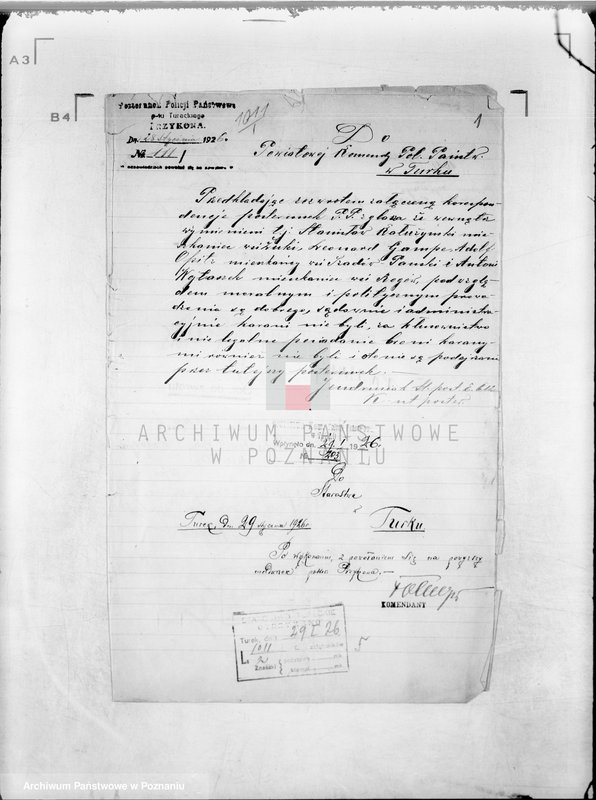 A3
B4
Posterunek Policji Państwowej
p-tu Tureckiego
PRZYKONA.
Dn. 28 stycznia 1926.
№ 111/
1011
1
Do
Powiatowej Komendy Pol. Państw.
w Turku
Przedkładając zezwrotem załączoną korespon
dencję posterunek P.P. zgłasza że wewnątrz
wymienieni tj. Stanisław Kałużyński mie-
szkaniec wsi Leonard Gampe, Adolf
Opitz mieszkańcy wsi Radów Pański i Antoni
mieszkaniec wsi Rogów, pod wzglę-
dem moralnym i politycznym prowa-
dzenia są dobrego, sądownie i administra
cyjnie karani nie byli, za kłusownictwo
i nielegalne posiadanie broni karany-
mi również nie byli i o to nie są podejrzani
przez tutejszy posterunek.—
st. post.
ARCHIWUM PAŃSTWOWE
W POZNANIU
Wpłynęło dn. 29/I 1926.
№ 202
Do
Starostwa
w
Turek, Dn. 29 stycznia 1926r.
Turku
Po wykonaniu, z powołaniem się na powyższy
meldunek poster. Przykona.—
KOMENDANT
Turek, dnia 29 I 26
L. 1011
2
5
Archiwum Państwowe w Poznaniu